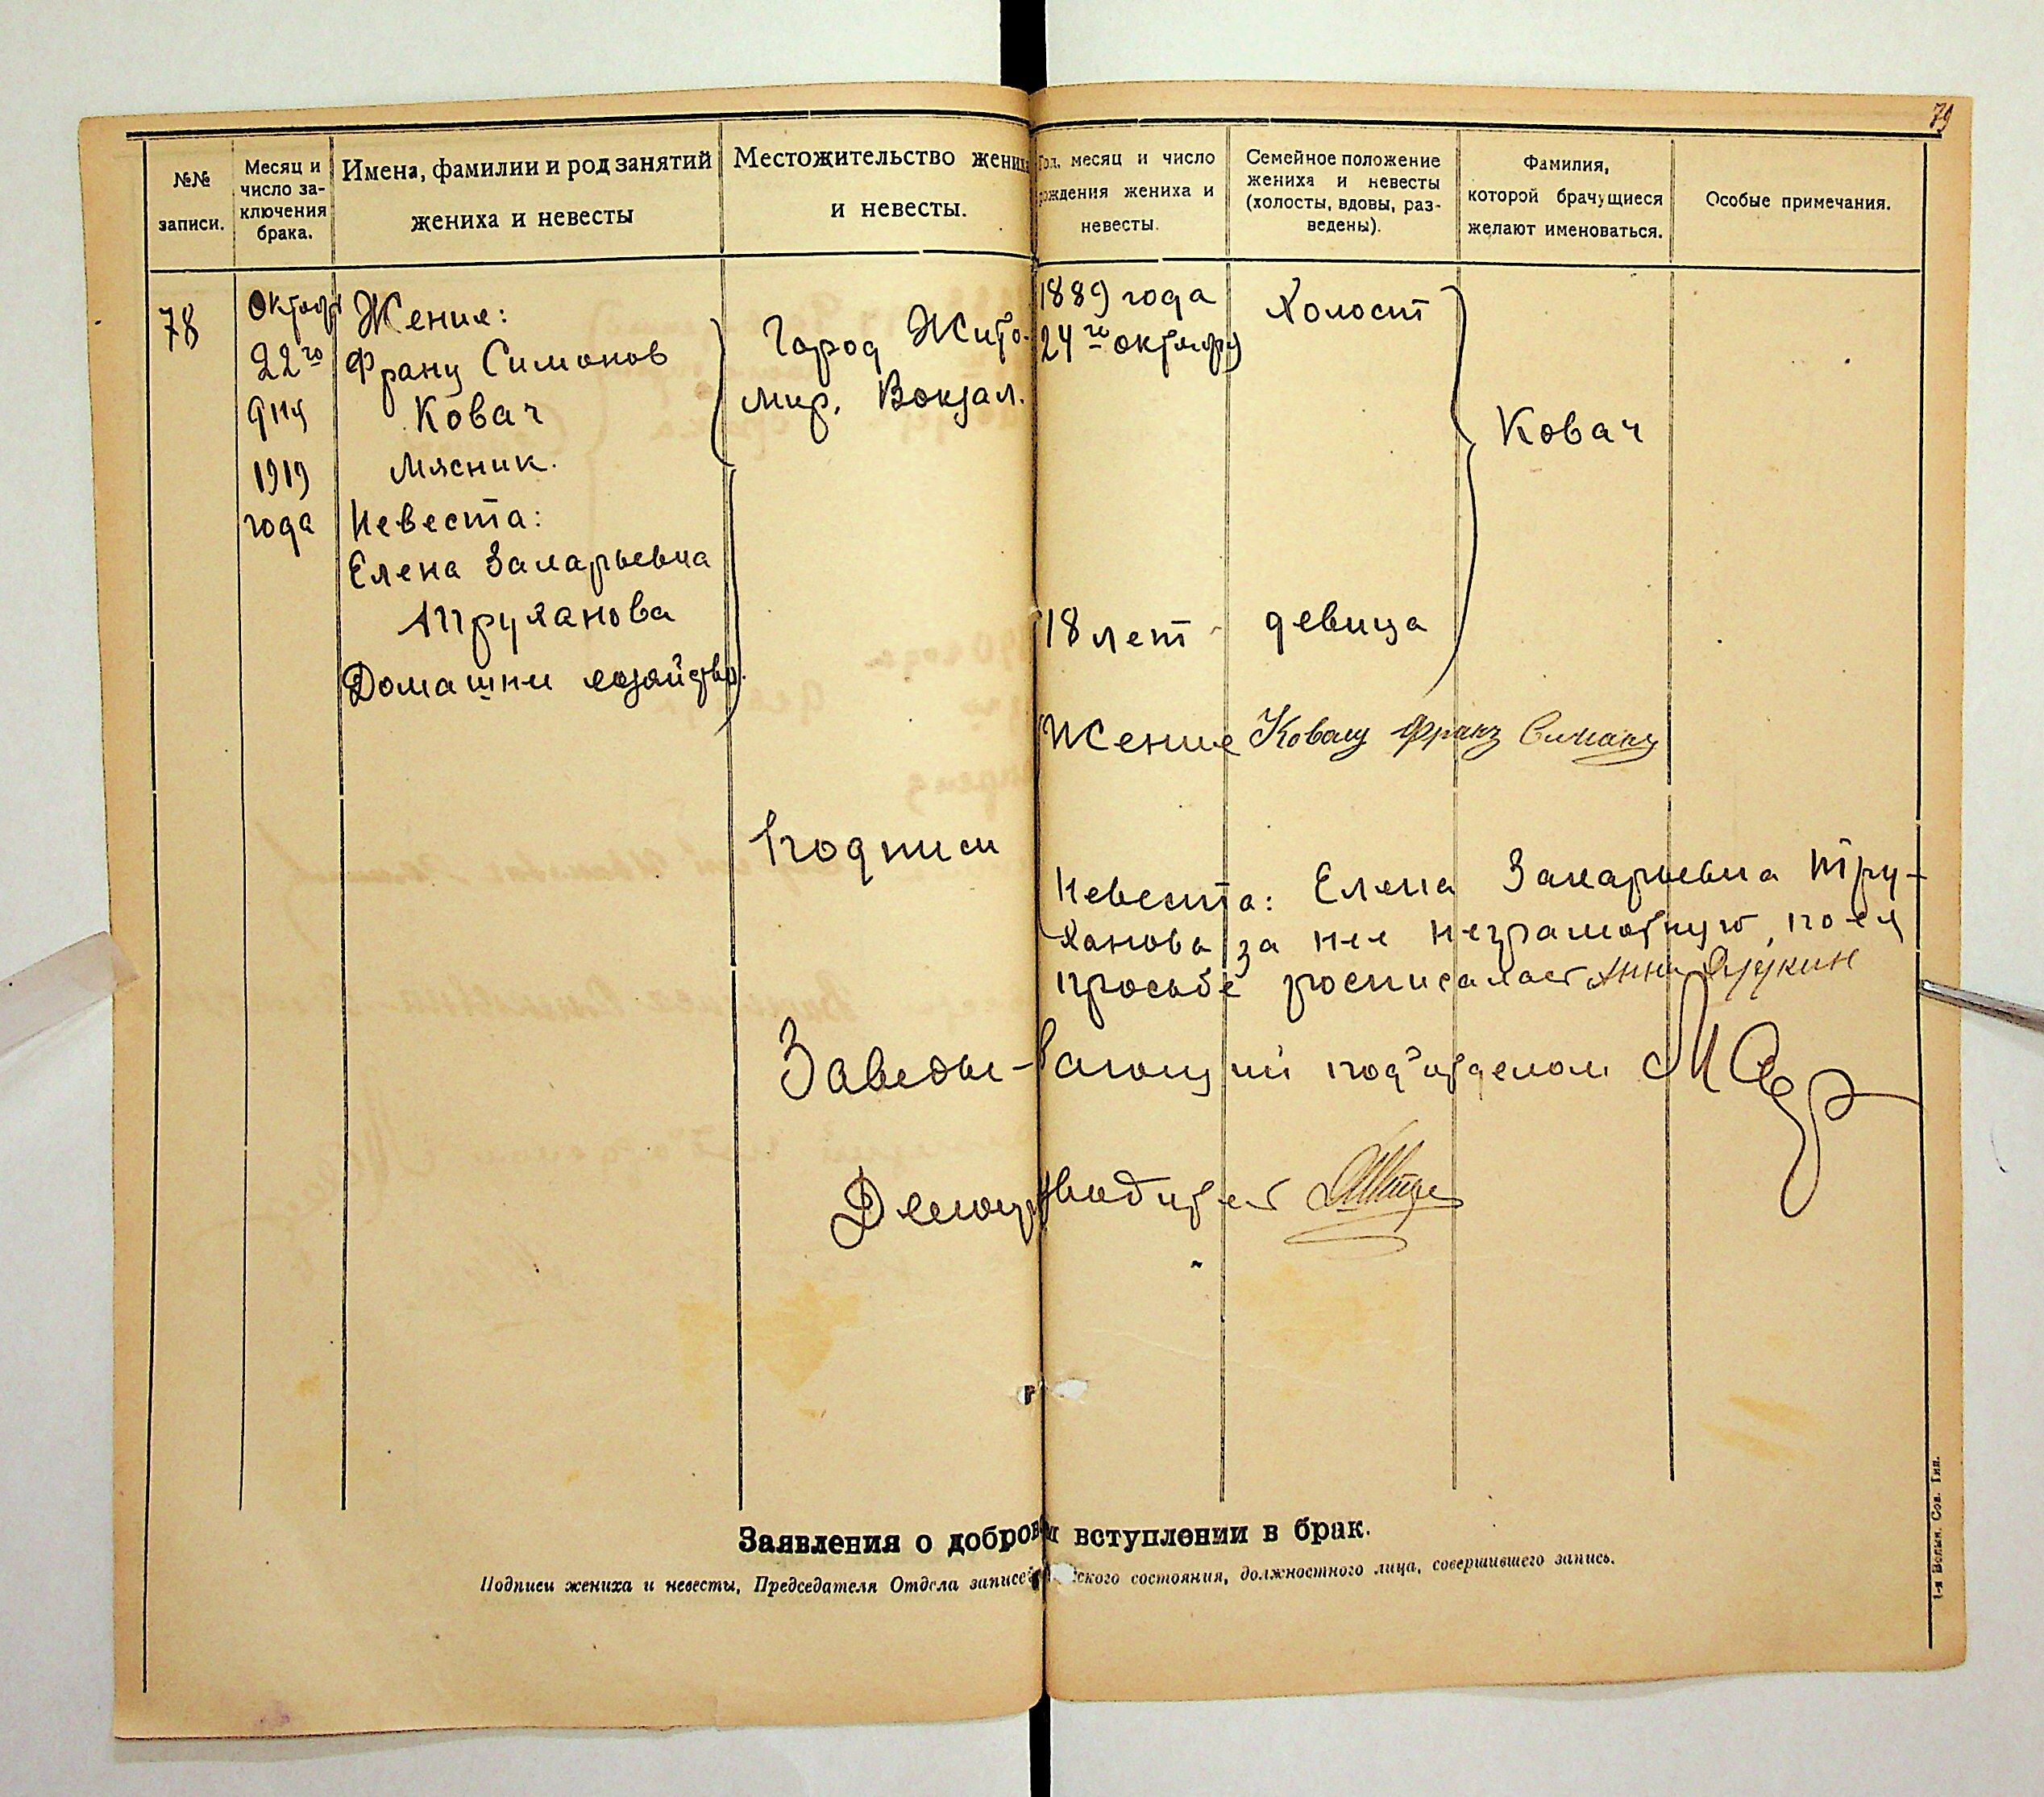 79
№№ записи.
Месяц и число заключения брака.
Имена, фамилии и род занятий
жениха и невесты
Местожительство жених
и невесты.
Год, месяц и число
рождения жениха и
невесты.
Семейное положение
жениха и невесты
(холосты, вдовы, раз-
ведены).
Фамилия,
которой брачущиеся
желают именоваться.
Особые примечания.
78
Октября
22го
дня
1919
года
Жених:
Франц Симонов
Ковач
Мясник.
Невеста:
Елена Захарьевна
Труханова
Домашни хозяйство.
Город Жито-
мир. Вокзал.
1889 года
24го октября
18 лет
Холост
девица
Ковач
Жених Ковач Франц
Подписи
Невеста: Елена Захарьевна Тру-
ханова за нее неграмотную, по ея
просьбе росписалась Анна
Заведы-вающий под'отделом
Делопроизводитель
Заявления о добров вступлении в брак.
Подписи жениха и невесты, Председателя Отдела записей ского состояния, должностного лица, совершившего запись.
1-я Волын. Сов. Тип.